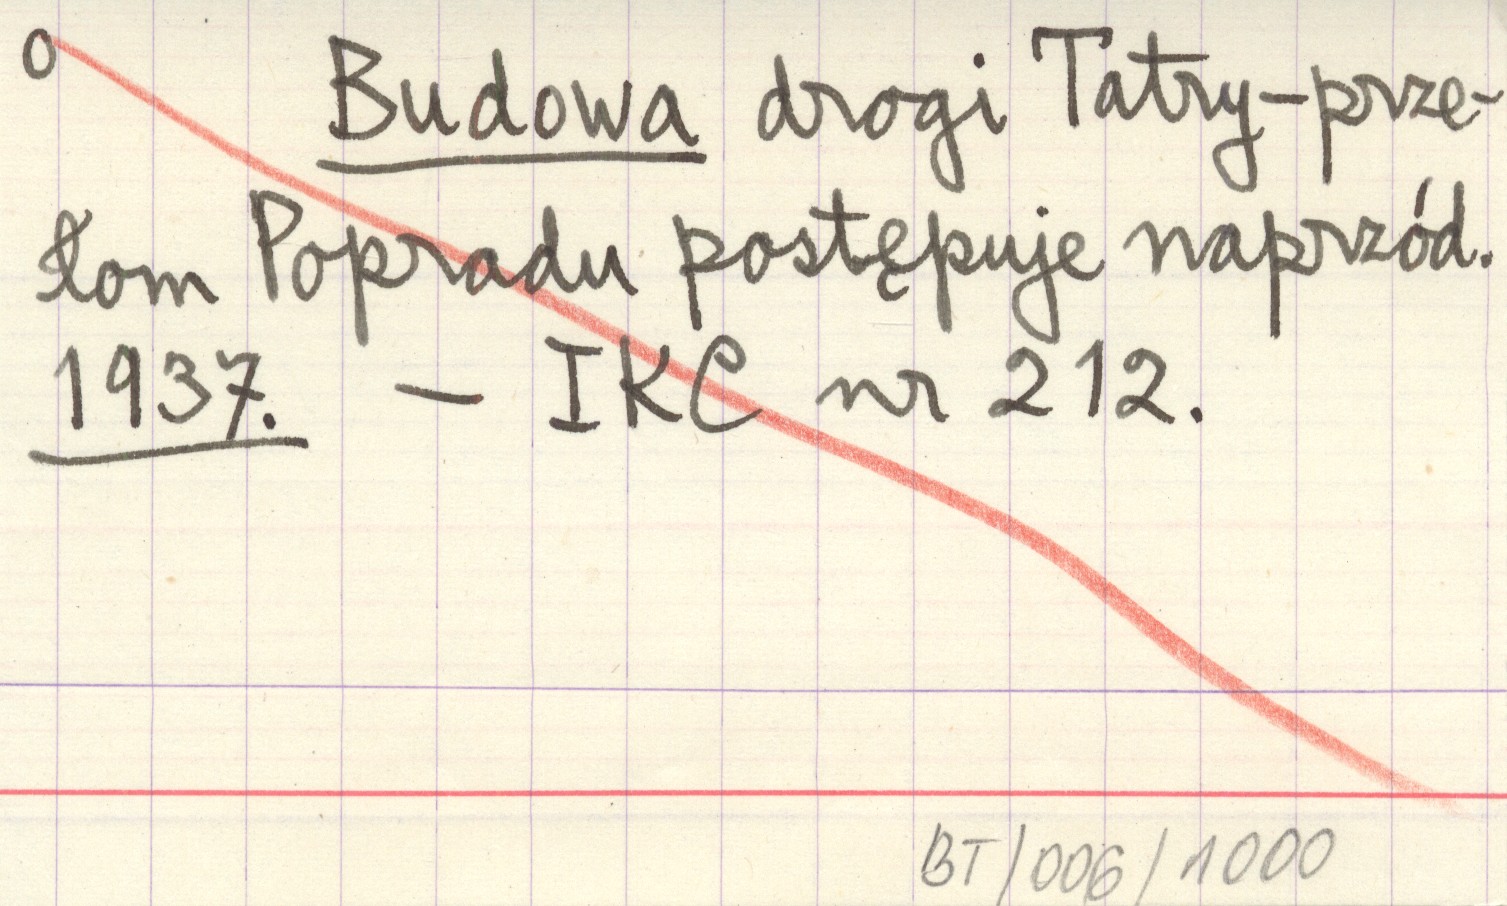 0 Budowa drogi Tatry-prze-
łom Popradu postępuje naprzód.
1937. – IKC nr 212.
BT/006/1000